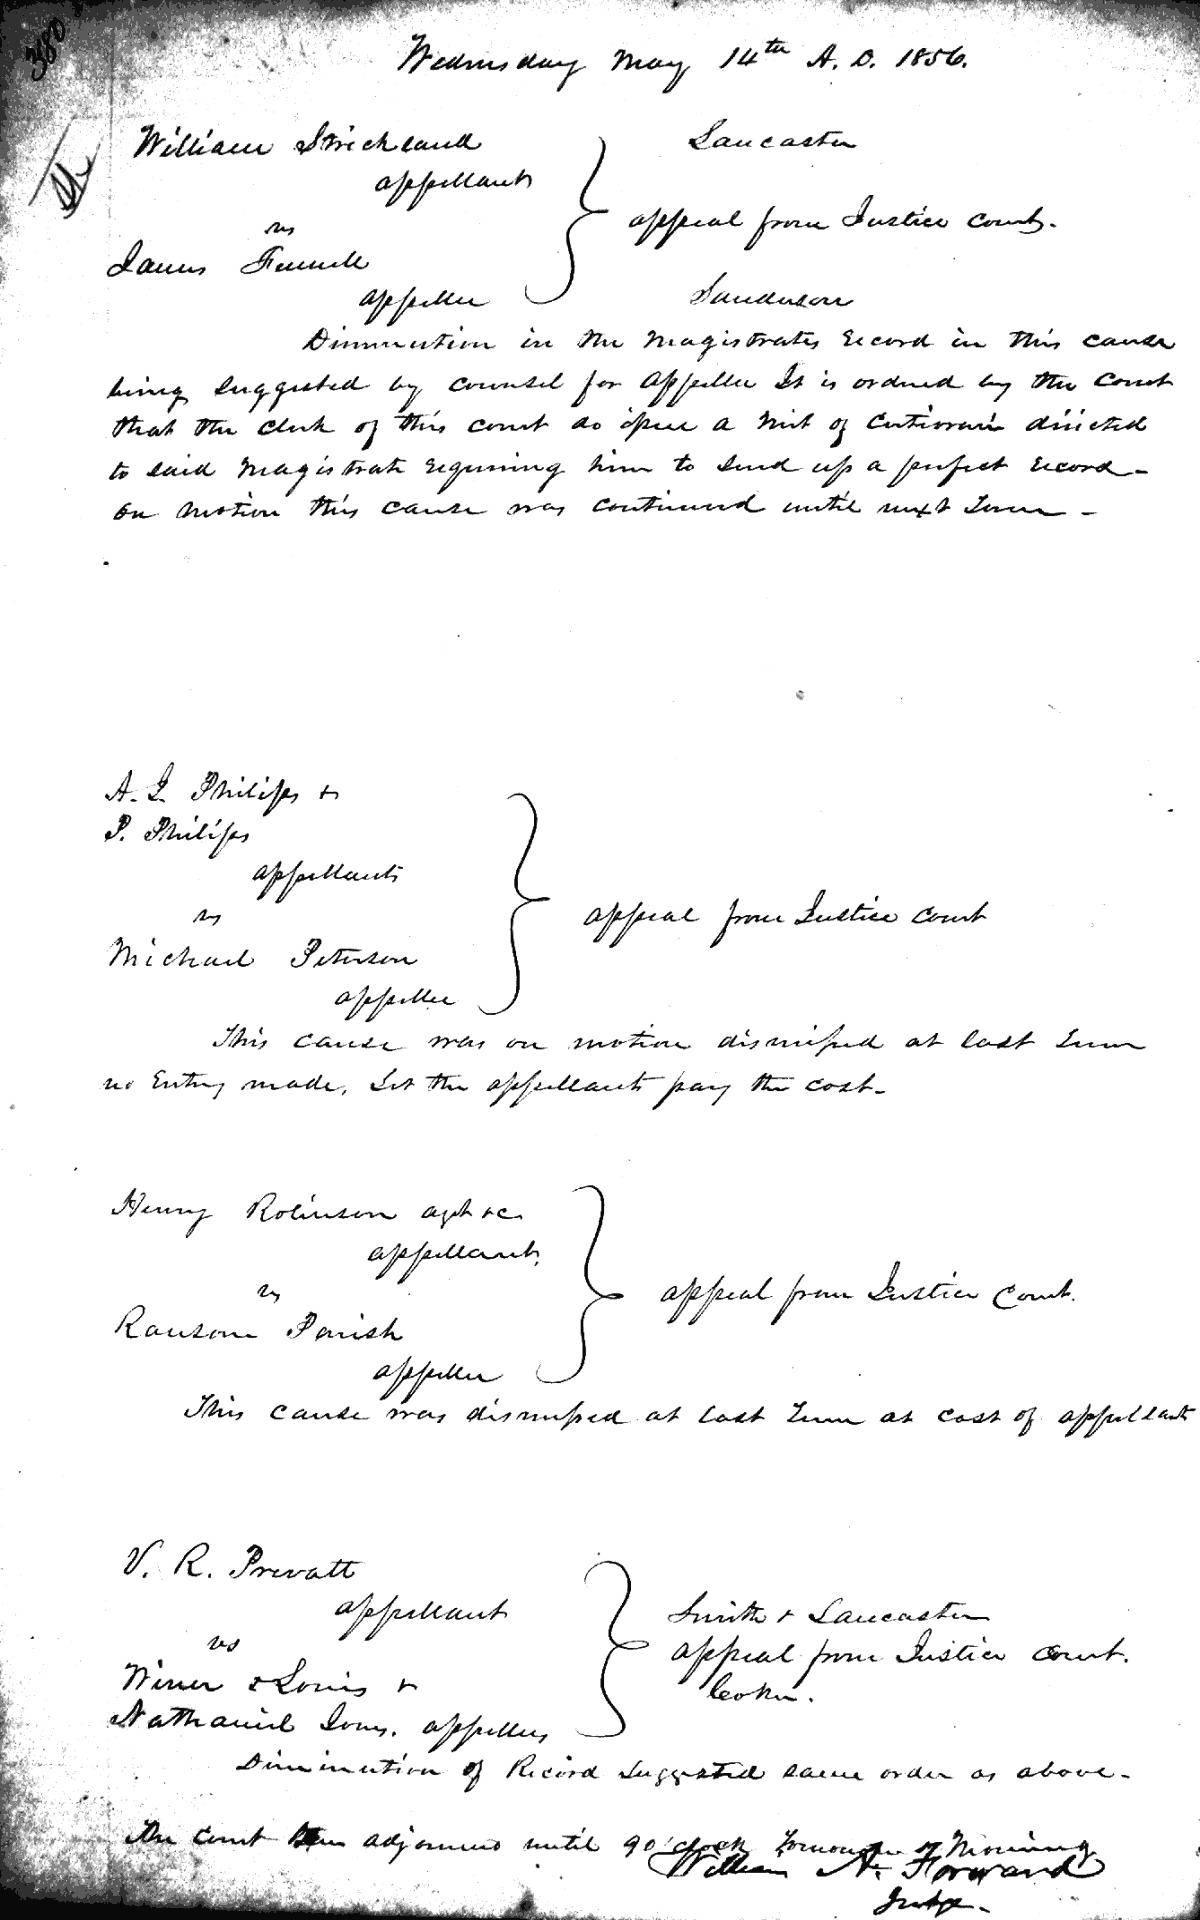 380
Wednesday May 14th A. D. 1856.
William Strickland
appellant
vs
James
appellee
Lancaster
appeal from Justice Court.
Sanderson
Diminution in the Magistrates record in this cause
being suggested by counsel for appellee It is ordered by the Court
that the Clerk of this court do issue a writ of Certiorari directed
to said Magistrate requiring him to send up a perfect record -
on motion this cause was continued until next Term -
A. I. Philips &
P. Philips
appellants
vs
Michael Peterson
appellee
appeal from Justice Court
This cause was on motion dismissed at last Term
no Entry made, let the appellants pay the cost -
Henry Robinson agt &c.
appellant,
vs
Ransom Parish
appellee
appeal from Justice Court.
This cause was dismissed at last Term at cost of appellant
V. R. Prevatt
appellant
vs
& Louis &
Nathaniel Jones. appellees
Smith & Lancaster
appeal from Justice Court.
Cooker.
Diminution of Record suggested same order as above -
The Court then adjourned until 9 o'clock Tomorrow Morning
William A. Forward
Judge -